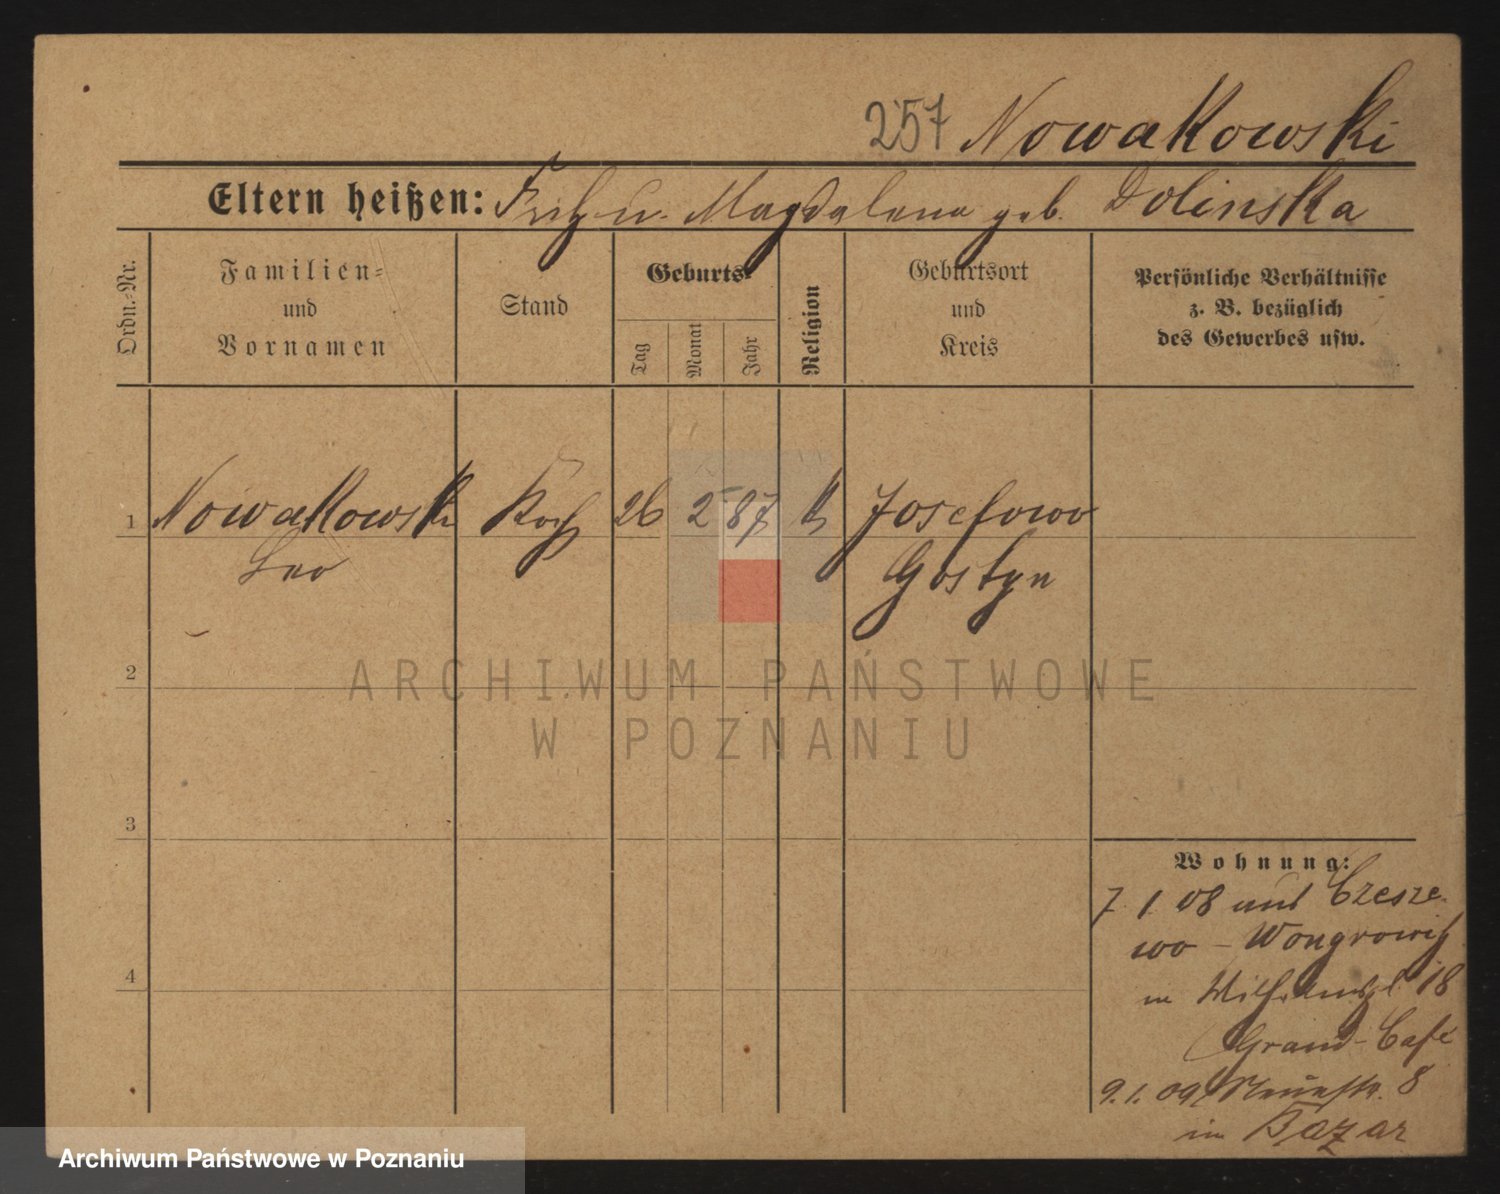 257 Nowakowski
Eltern heißen: Fritz u. Magdalena geb. Dolinska
Ordn.-Nr.
Familien-
und
Vornamen
Stand
Geburts-
Tag
Monat
Jahr
Religion
Geburtsort
und
Kreis
Persönliche Verhältnisse
z. B. bezüglich
des Gewerbes usw.
1 Nowakowski Koch 26 2 87 k Josefowo
Leo Gostyn
2
ARCHIWUM PAŃSTWOWE
W POZNANIU
3
Wohnung:
7. 1. 08 aus Czesze-
wo - Wongrowitz
in Wilhelmspl 18
Grand-Café
4
9.1.09 Neuestr. 8
im Bazar
Archiwum Państwowe w Poznaniu